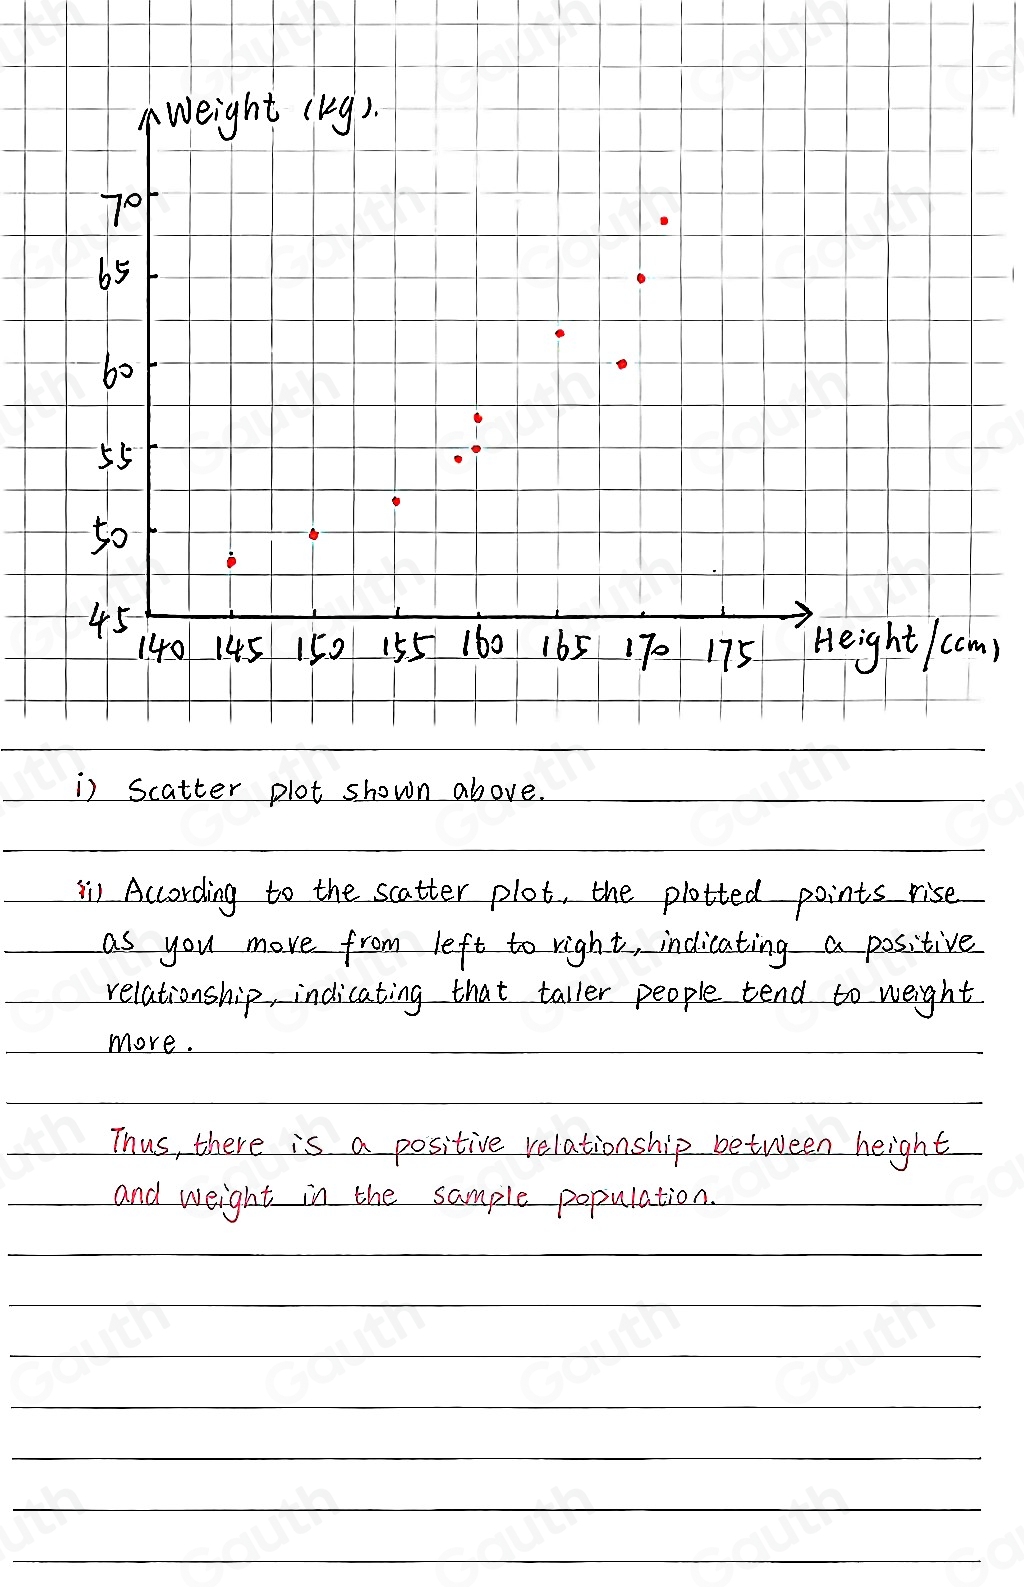 Weight (kg).
70
65
60
55
50
45
140 145 150 155 160 165 170 175 Height/(cm)
i) Scatter plot shown above.
ii) According to the scatter plot, the plotted points rise
as you move from left to right, indicating a positive
relationship, indicating that taller people tend to weight
more.
Thus, there is a positive relationship between height
and weight in the sample population.
Gauth